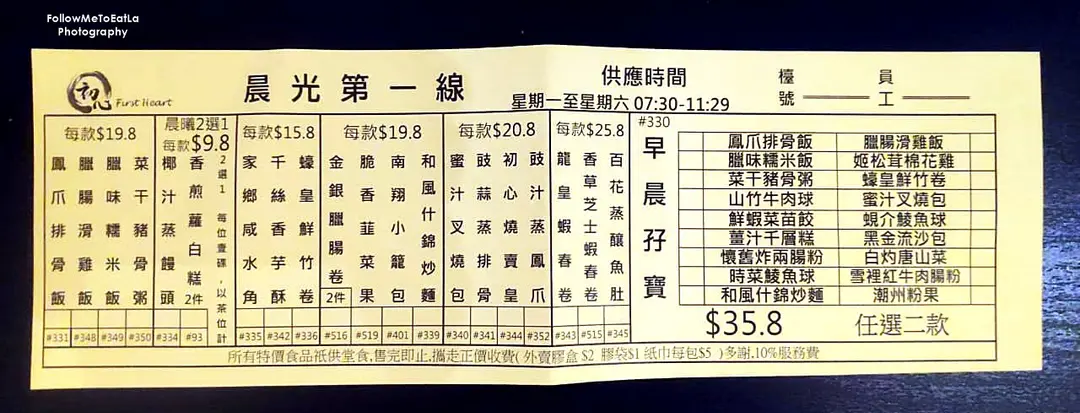 FollowMeToEatLa
Photography
初心 First Heart
晨光第一線
供應時間
星期一至星期六 07:30-11:29
檯號
員工
每款$19.8
鳳爪排骨飯 #331
臘腸滑雞飯 #348
臘味糯米飯 #349
菜干豬骨粥 #350
晨曦2選1
每款$9.8
椰汁蒸饅頭 #334
香煎蘿白糕 2件 #93
2選1 每位壹碟,以茶位計
每款$15.8
家鄉咸水角 #335
千絲香芋酥 #342
蠔皇鮮竹卷 #336
每款$19.8
金銀臘腸卷 2件 #516
脆香韮菜果 #519
南翔小籠包 #401
和風什錦炒麵 #339
每款$20.8
蜜汁叉燒包 #340
豉蒜蒸排骨 #341
初心燒賣皇 #344
豉汁蒸鳳爪 #352
每款$25.8
龍皇蝦春卷 #343
香草芝士蝦春卷 #515
百花蒸釀魚肚 #345
#330
早晨孖寶
鳳爪排骨飯 臘腸滑雞飯
臘味糯米飯 姬松茸棉花雞
菜干豬骨粥 蠔皇鮮竹卷
山竹牛肉球 蜜汁叉燒包
鮮蝦菜苗餃 蜆介鯪魚球
薑汁千層糕 黑金流沙包
懷舊炸兩腸粉 白灼唐山菜
時菜鯪魚球 雪裡紅牛肉腸粉
和風什錦炒麵 潮州粉果
$35.8 任選二款
所有特價食品祇供堂食,售完即止,攜走正價收費(外賣膠盒 $2 膠袋$1 紙巾每包$5 )多謝.10%服務費